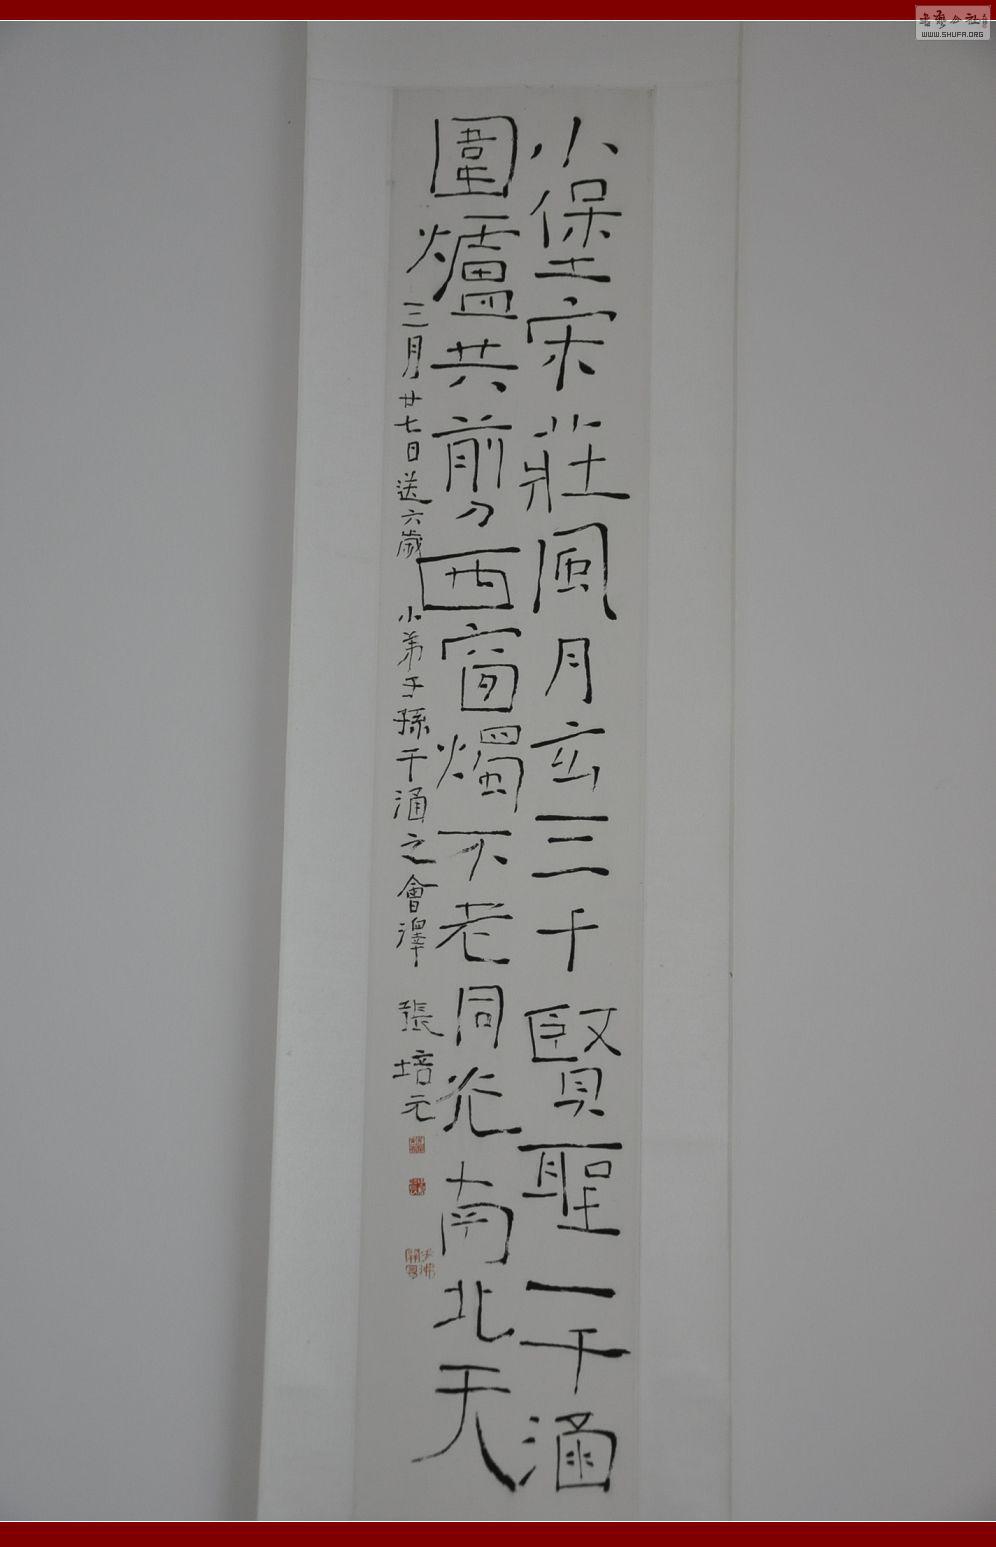 小堡宋莊風月玄三千賢聖一千涵
圍爐共剪西窗燭不老同光南北天
三月廿七日送六歲 小弟子孫千涵之會澤 張培元
WWW.SHUFA.ORG